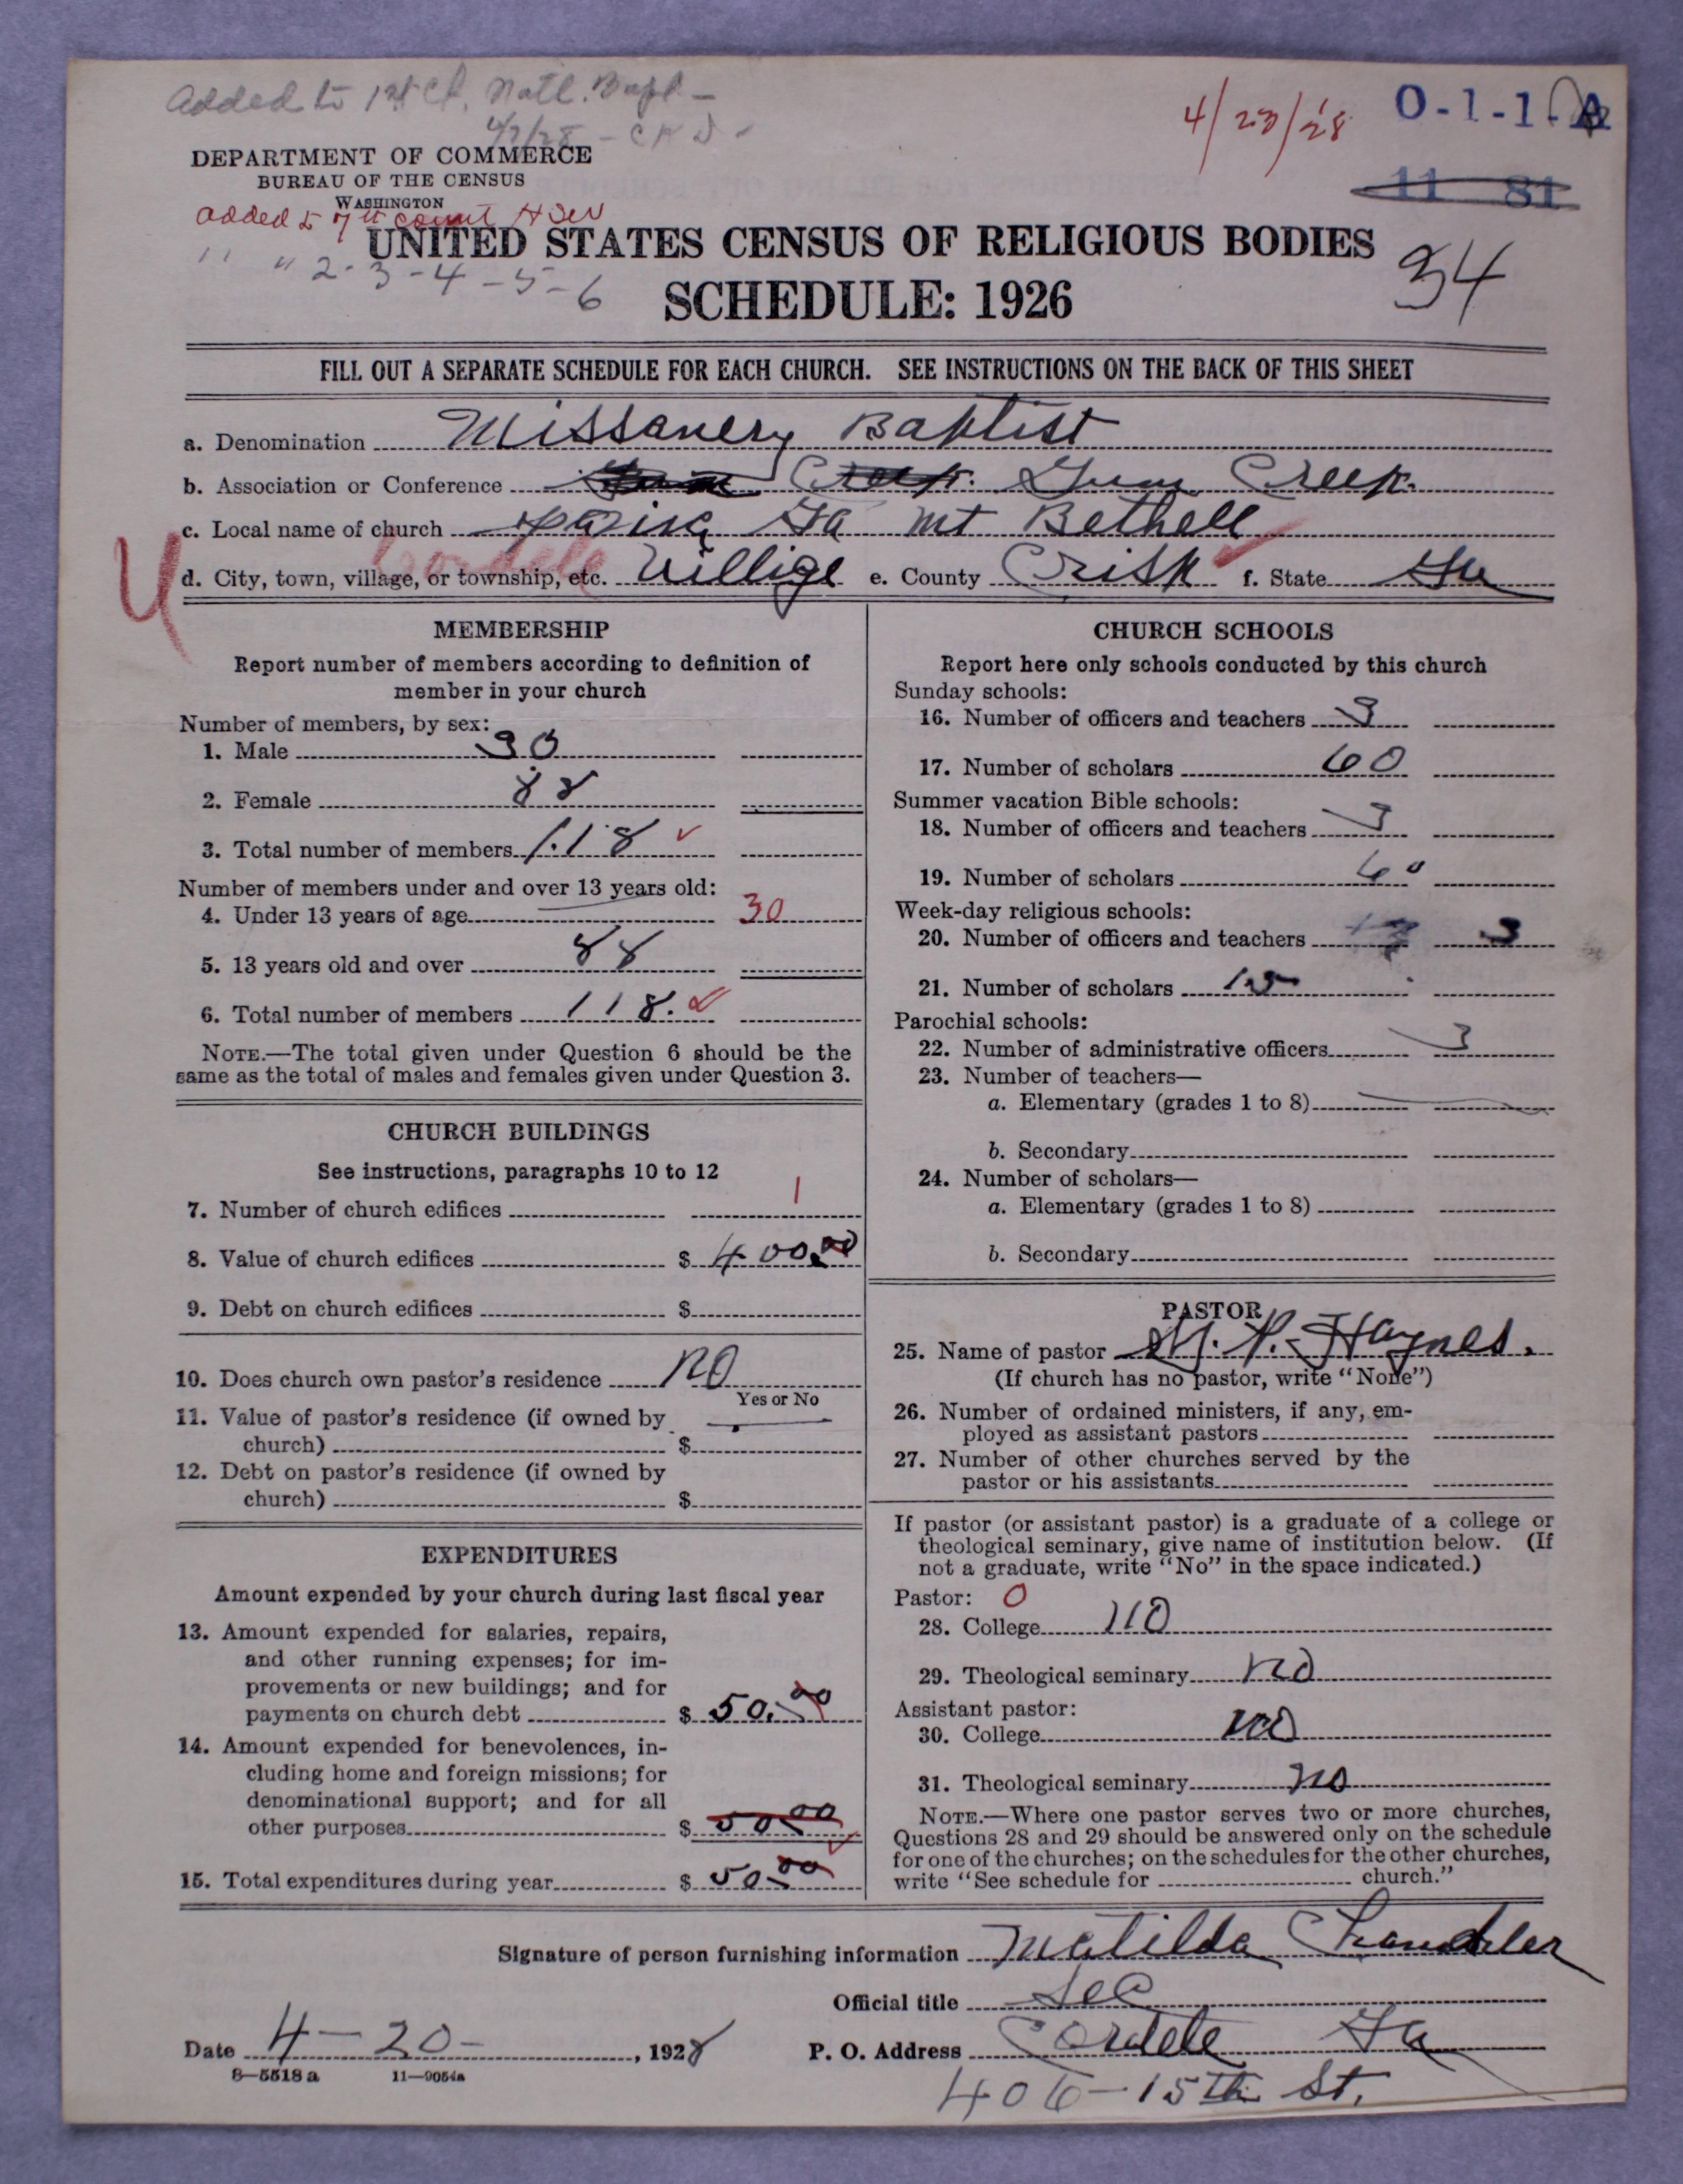 Added to 1st Ct. Natl. Bapt -
4/7/28 - C K D -
4/23/28
O-1-1-A
DEPARTMENT OF COMMERCE
BUREAU OF THE CENSUS
WASHINGTON
11 81
Added to 7th count
" " 2-3-4-5-6
UNITED STATES CENSUS OF RELIGIOUS BODIES
34
SCHEDULE: 1926
FILL OUT A SEPARATE SCHEDULE FOR EACH CHURCH. SEE INSTRUCTIONS ON THE BACK OF THIS SHEET
a. Denomination Missanery Baptist
b. Association or Conference Creek. Gum Creek.
c. Local name of church Ga mt Bethell
Cordele
d. City, town, village, or township, etc. Villige e. County Crisp f. State Ga
MEMBERSHIP
Report number of members according to definition of
member in your church
Number of members, by sex:
1. Male 30
2. Female 88
3. Total number of members 118
Number of members under and over 13 years old:
4. Under 13 years of age 30
5. 13 years old and over 88
6. Total number of members 118.
NOTE.—The total given under Question 6 should be the
same as the total of males and females given under Question 3.
CHURCH BUILDINGS
See instructions, paragraphs 10 to 12
7. Number of church edifices 1
8. Value of church edifices $ 400.00
9. Debt on church edifices $
10. Does church own pastor's residence no
Yes or No
11. Value of pastor's residence (if owned by
church) $
12. Debt on pastor's residence (if owned by
church) $
EXPENDITURES
Amount expended by your church during last fiscal year
13. Amount expended for salaries, repairs,
and other running expenses; for im-
provements or new buildings; and for
payments on church debt $ 50.00
14. Amount expended for benevolences, in-
cluding home and foreign missions; for
denominational support; and for all
other purposes $ 50.00
15. Total expenditures during year $ 50.00
CHURCH SCHOOLS
Report here only schools conducted by this church
Sunday schools:
16. Number of officers and teachers 3
17. Number of scholars 60
Summer vacation Bible schools:
18. Number of officers and teachers 3
19. Number of scholars 60
Week-day religious schools:
20. Number of officers and teachers 3
21. Number of scholars 15
Parochial schools:
22. Number of administrative officers 3
23. Number of teachers—
a. Elementary (grades 1 to 8)
b. Secondary
24. Number of scholars—
a. Elementary (grades 1 to 8)
b. Secondary
PASTOR
25. Name of pastor P. Haynes.
(If church has no pastor, write "None")
26. Number of ordained ministers, if any, em-
ployed as assistant pastors
27. Number of other churches served by the
pastor or his assistants
If pastor (or assistant pastor) is a graduate of a college or
theological seminary, give name of institution below. (If
not a graduate, write "No" in the space indicated.)
Pastor: 0
28. College no
29. Theological seminary no
Assistant pastor:
30. College no
31. Theological seminary no
NOTE.—Where one pastor serves two or more churches,
Questions 28 and 29 should be answered only on the schedule
for one of the churches; on the schedules for the other churches,
write "See schedule for church."
Signature of person furnishing information Matilda Chandler
Official title Sec
Date 4-20-, 1928 P. O. Address Cordele Ga
8-5518a 11-9054a
406-15th St.